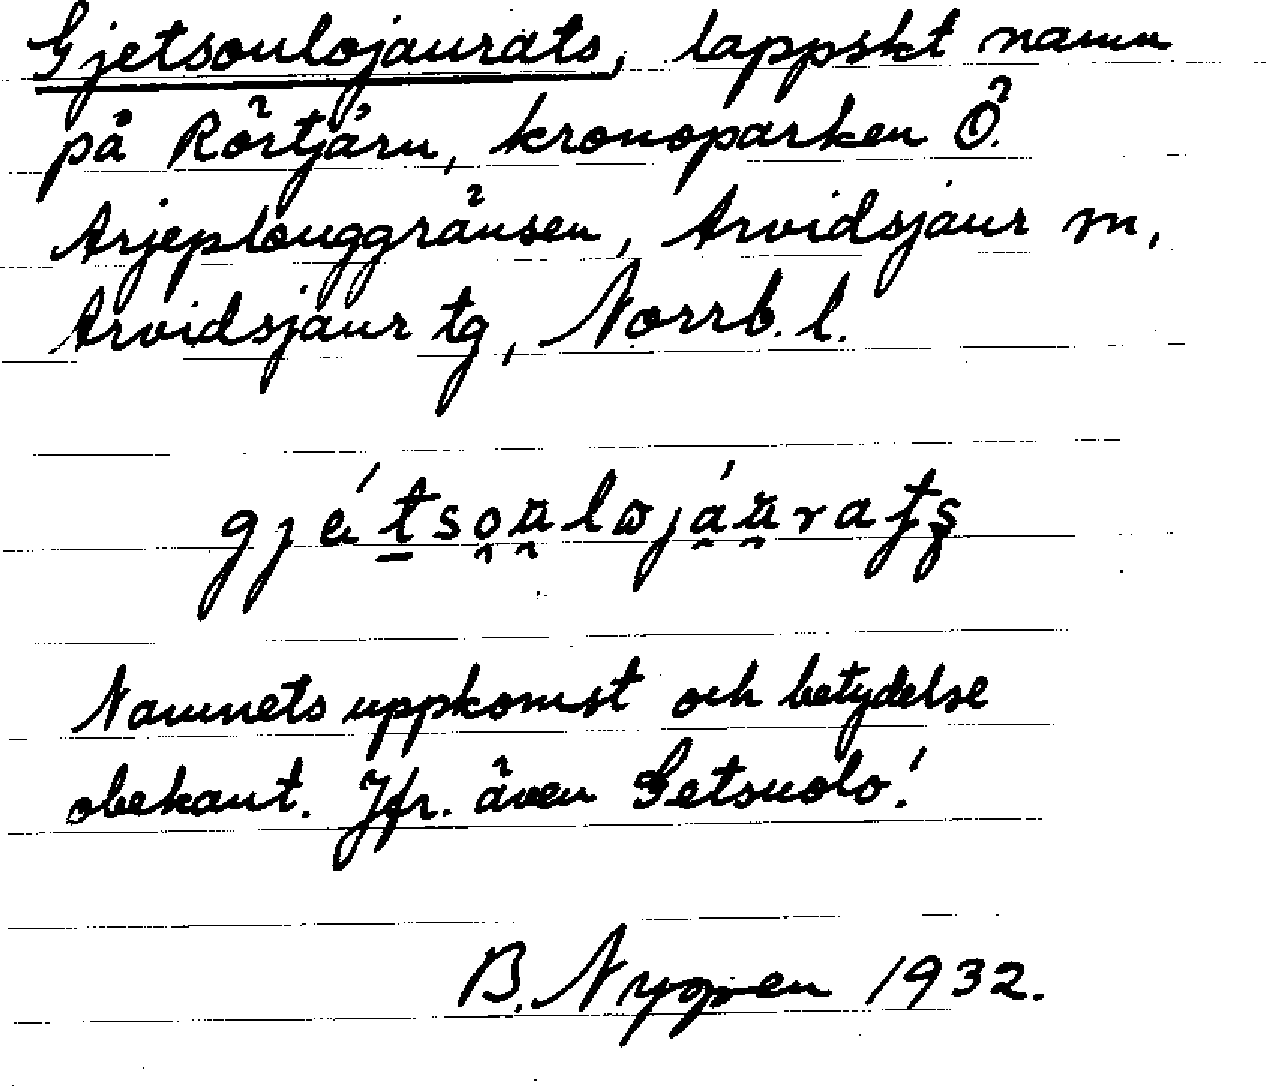 Gjetsoulojaurats, lappskt namn
på Rörtjärn, kronoparken Ö.
Arjeplouggränsen, Arvidsjaur sn,
Arvidsjaur tg, Norrb. l.
gjétso̯u̯lojá̯u̯rats
Namnets uppkomst och betydelse
obekant. Jfr. även Getsuolo!
B. Nygren 1932.